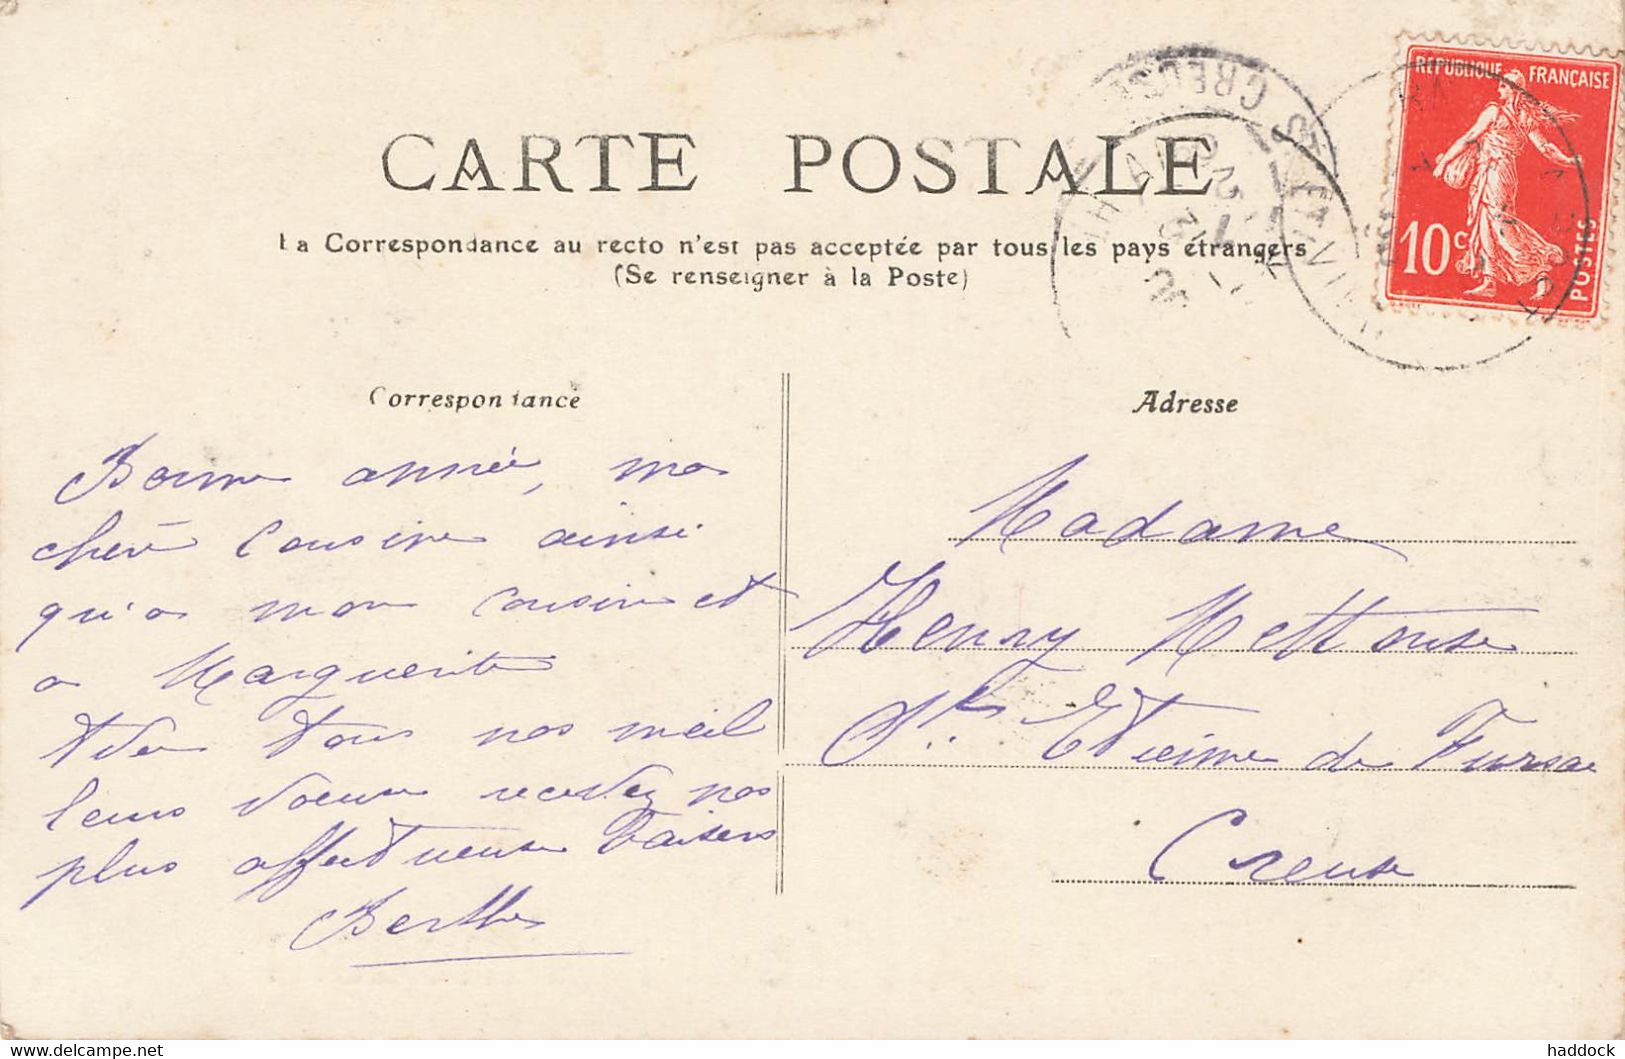 CARTE POSTALE
La Correspondance au recto n'est pas acceptée par tous les pays étrangers
(Se renseigner à la Poste)
RÉPUBLIQUE FRANÇAISE
10c
POSTES
CREUSE
Correspondance
Bonne année, ma
chère Cousine ainsi
qu'a mon cousin et
a Marguerite
tous nos meil
leurs voeux recevez nos
plus affectueux baisers
Berthe
Adresse
Madame
Henry
St Etienne de Fursac
Creuse
delcampe.net
haddock